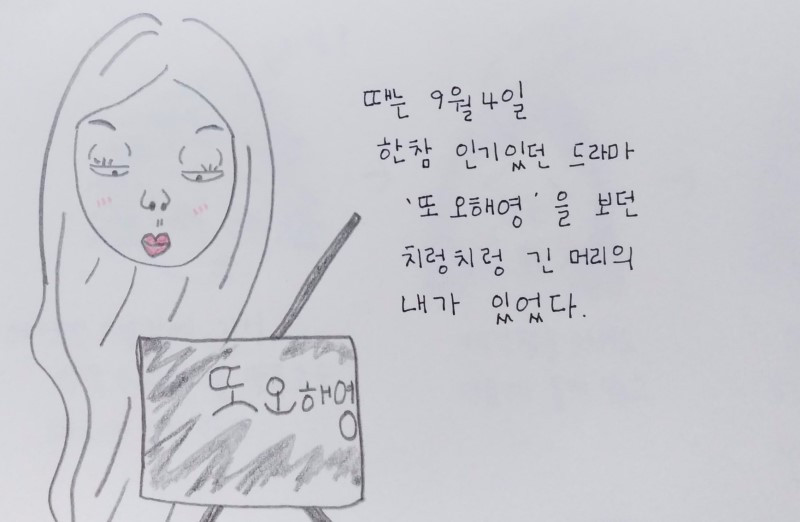 때는 9월 4일
한참 인기있던 드라마
'또 오해영'을 보던
치렁치렁 긴 머리의
내가 있었다.
또 오해영